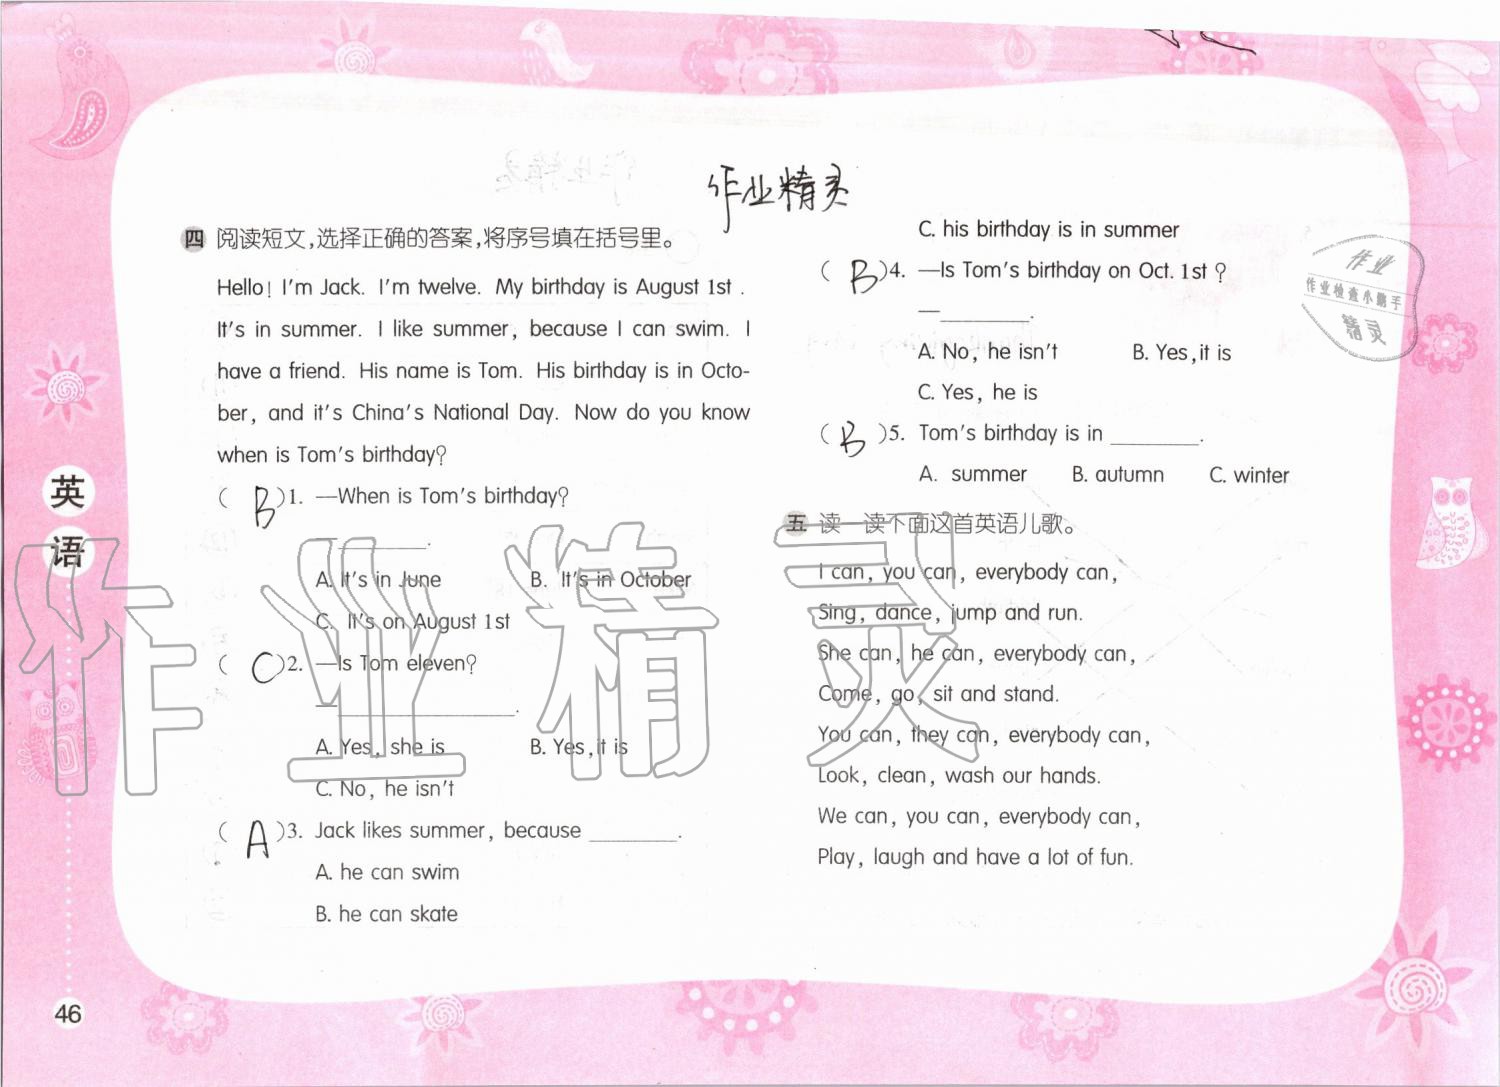 作业精灵
四 阅读短文,选择正确的答案,将序号填在括号里。
Hello! I'm Jack. I'm twelve. My birthday is August 1st.
It's in summer. I like summer, because I can swim. I
have a friend. His name is Tom. His birthday is in Octo-
ber, and it's China's National Day. Now do you know
when is Tom's birthday?
( B )1. —When is Tom's birthday?
—________.
A. It's in June B. It's in October
C. It's on August 1st
( C )2. —Is Tom eleven?
—________________.
A. Yes, she is B. Yes,it is
C. No, he isn't
( A )3. Jack likes summer, because ________.
A. he can swim
B. he can skate
C. his birthday is in summer
( B )4. —Is Tom's birthday on Oct. 1st?
—________.
A. No, he isn't B. Yes,it is
C. Yes, he is
( B )5. Tom's birthday is in ________.
A. summer B. autumn C. winter
五 读一读下面这首英语儿歌。
I can, you can, everybody can,
Sing, dance, jump and run.
She can, he can, everybody can,
Come, go, sit and stand.
You can, they can, everybody can,
Look, clean, wash our hands.
We can, you can, everybody can,
Play, laugh and have a lot of fun.
作业
作业检查小助手
精灵
英语
46
作业精灵